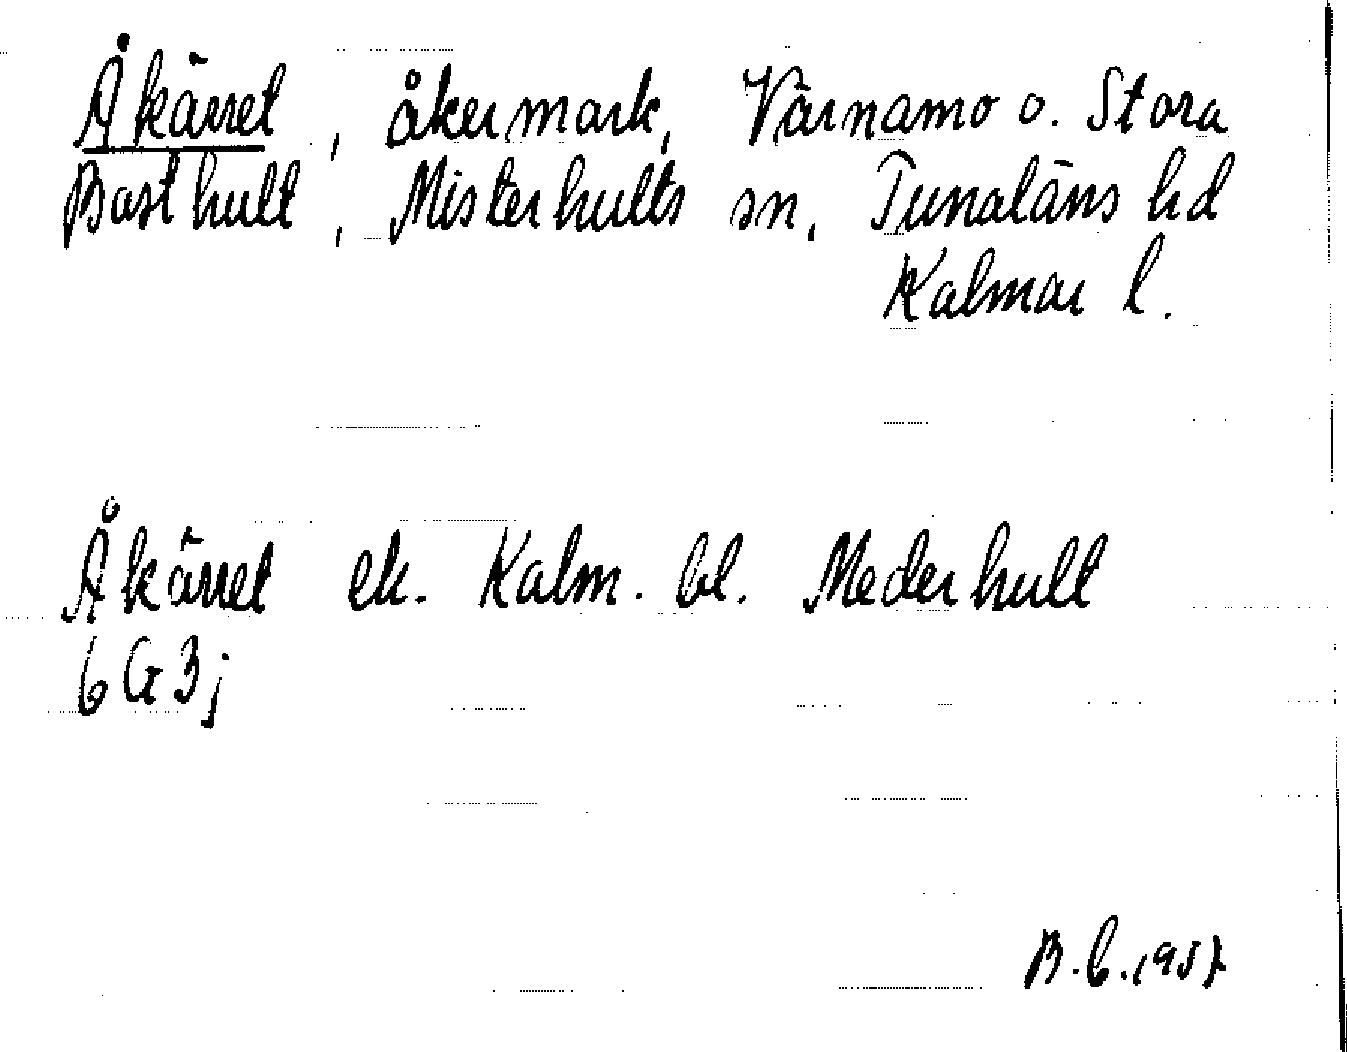 Åkärret, åkermark, Värnamo o. Stora
Basthult, Misterhults sn, Tunaläns hd
Kalmar l.
Åkärret ek. Kalm. bl. Mederhult
6G3j
B.b.1957